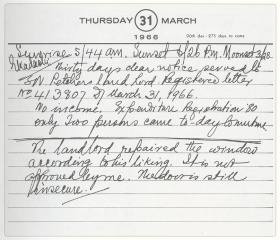 THURSDAY 31 MARCH
1966
90th day - 275 days to come
Sunrise 5/44 am. Sunset 6/26 P.M. Moonset 3/28
Thirty days clear notice served to
Landlord Registered letter
No 413807 of March 31, 1966.
No income. Expenditure Registration
only Two persons came to-day
The Landlord repaired the window
according to his liking. It is not
approved by me. The door is still
insecure.